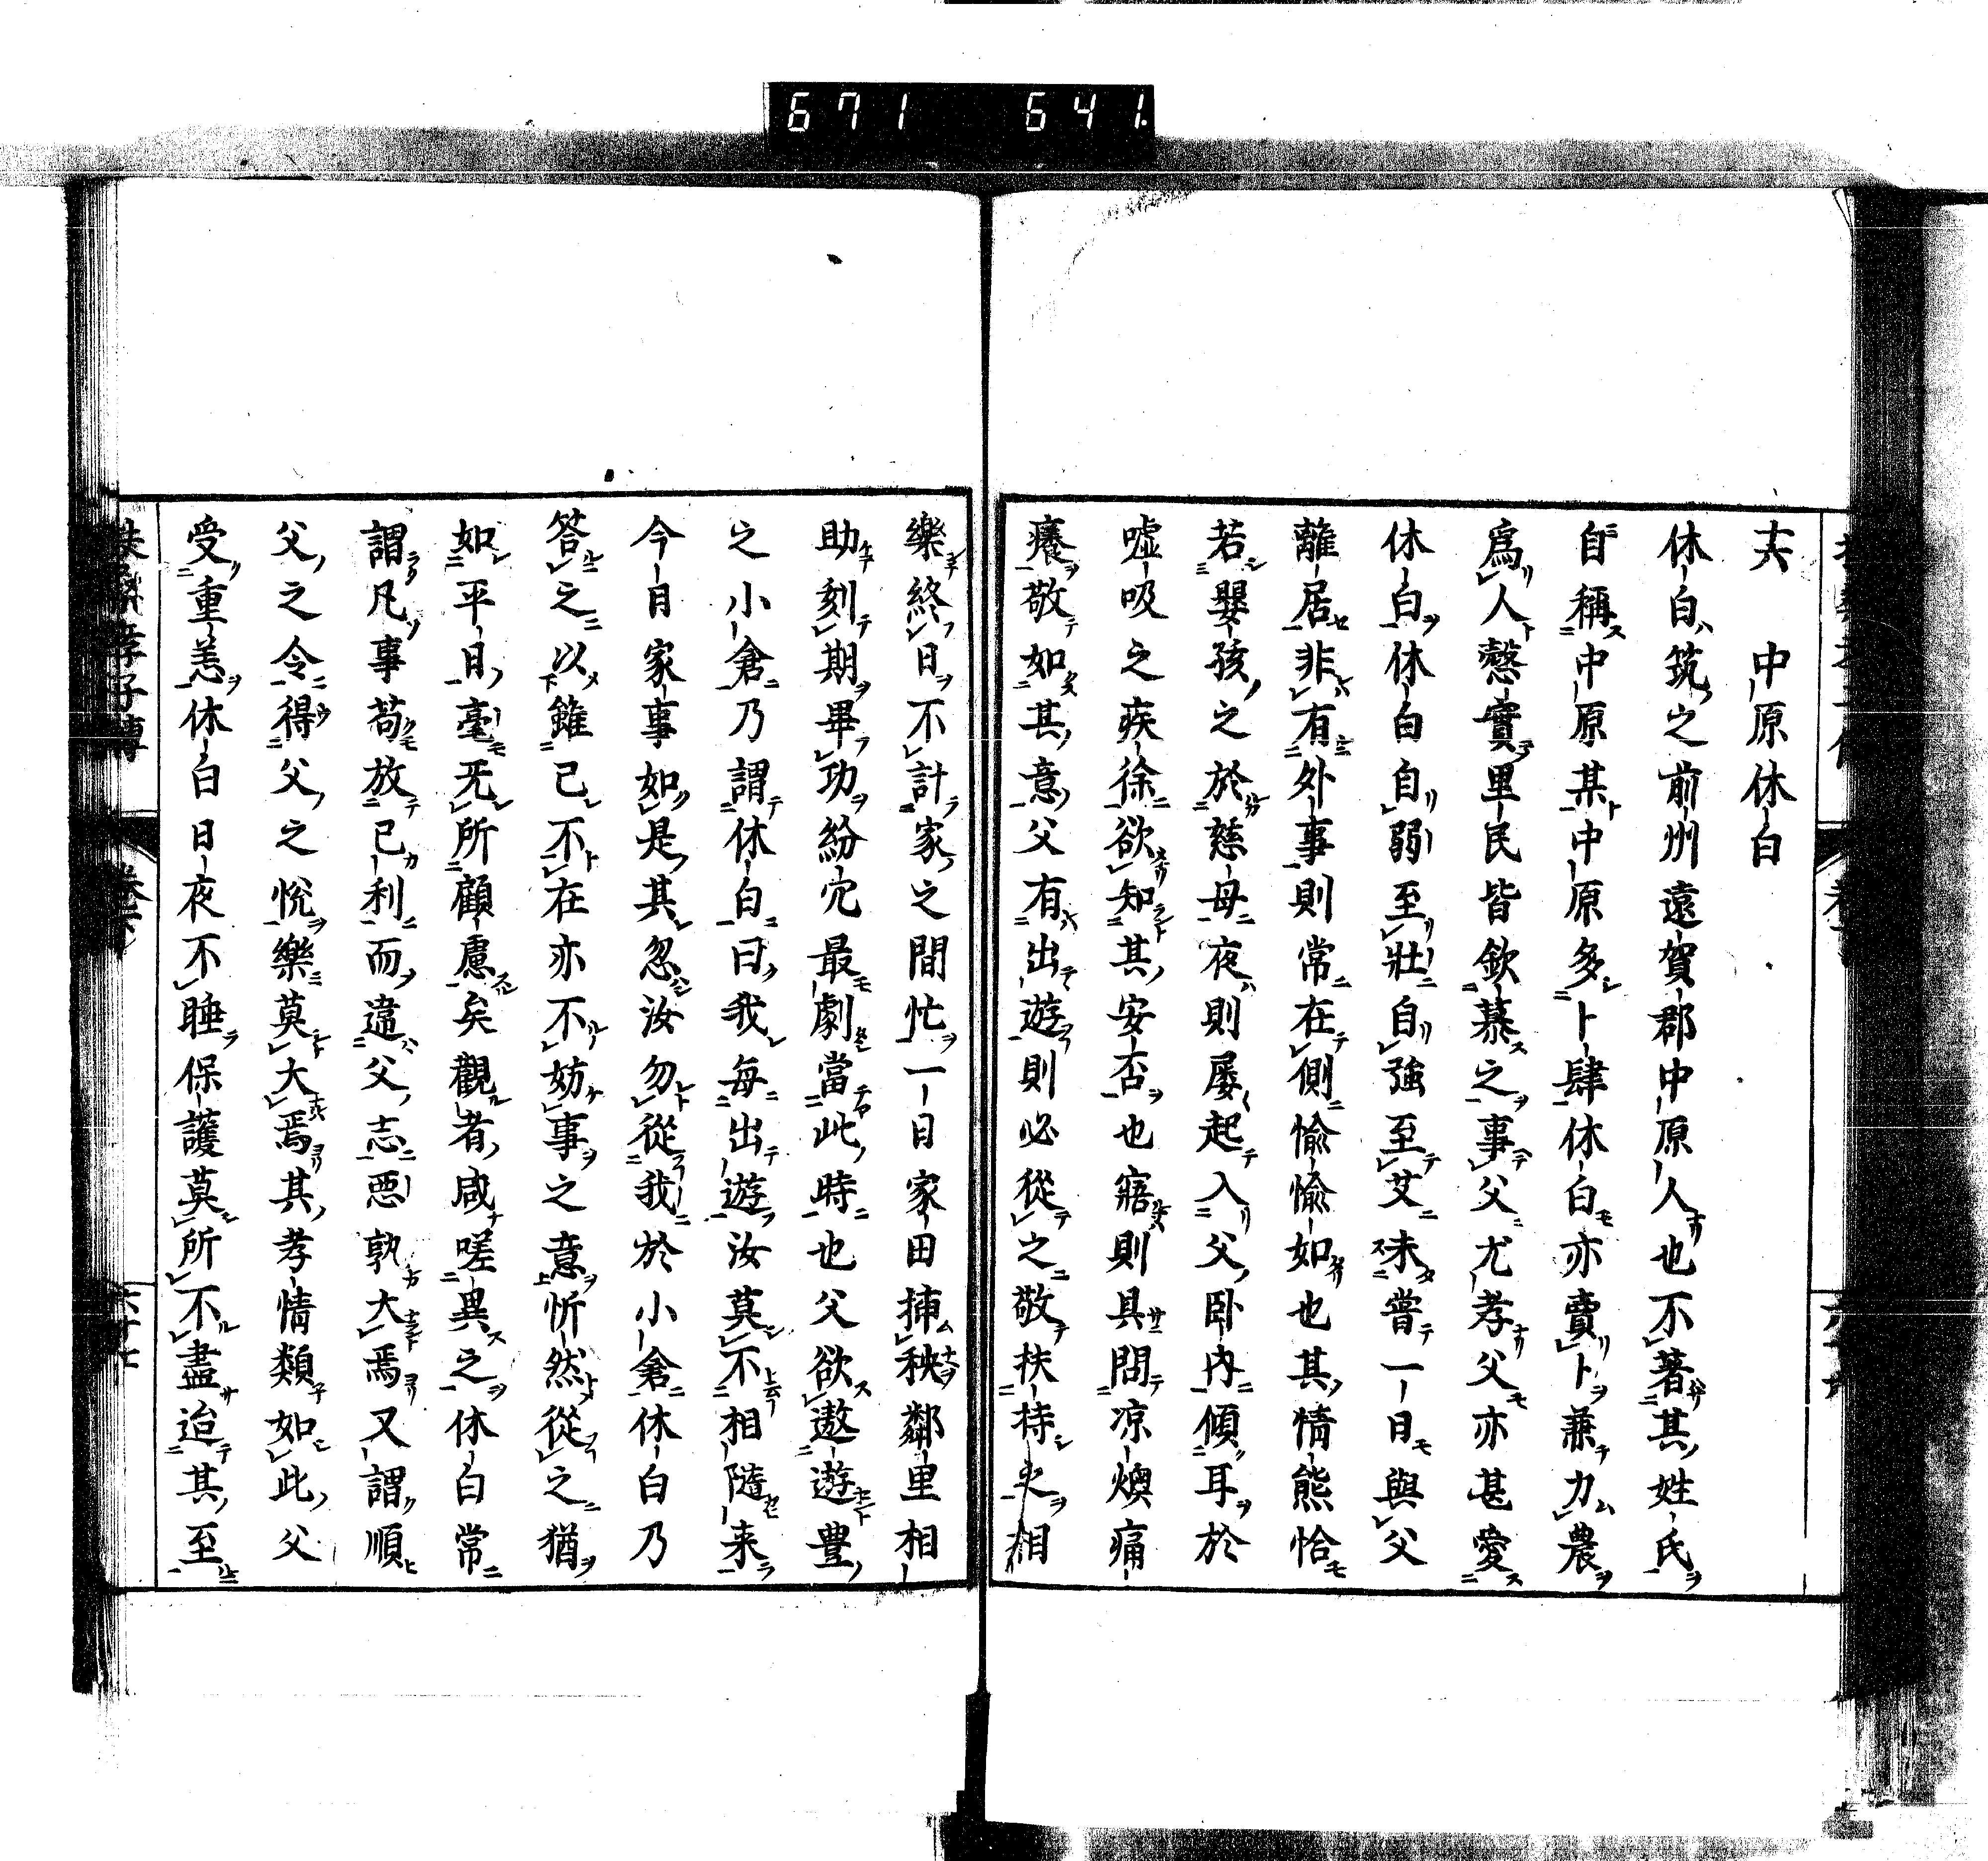 671 641.
十六 中原休白
休白筑之前州遠賀郡中原人也不著其姓氏
自稱中原某中原多卜肆休白亦賣卜兼力農
爲人愨實里民皆欽慕之事父尤孝父亦甚愛
休白休白自弱至壯自強至艾未嘗一日與父
離居非有外事則常在側愉愉如也其情態恰
若嬰孩之於慈母夜則屡起入父卧内傾耳於
嘘吸之疾徐欲知其安否也寤則具問凉燠痛
癢敬如其意父有出遊則必從之敬扶持之相
樂終日不計家之間忙一日家田挿秧鄰里相
助刻期畢功紛宂最劇當此時也父欲遨遊豊
之小倉乃謂休白曰我每出遊汝莫不相隨来
今日家事如是其忽汝勿從我於小倉休白乃
答之以雖已不在亦不妨事之意忻然從之猶
如平日毫无所顧慮矣觀者咸嗟異之休白常
謂凡事苟放已利而違父志悪孰大焉又謂順
父之令得父之悦樂莫大焉其孝情類如此父
受重恙休白日夜不睡保護莫所不盡迨其至
扶桑孝子傳 卷六 六十七